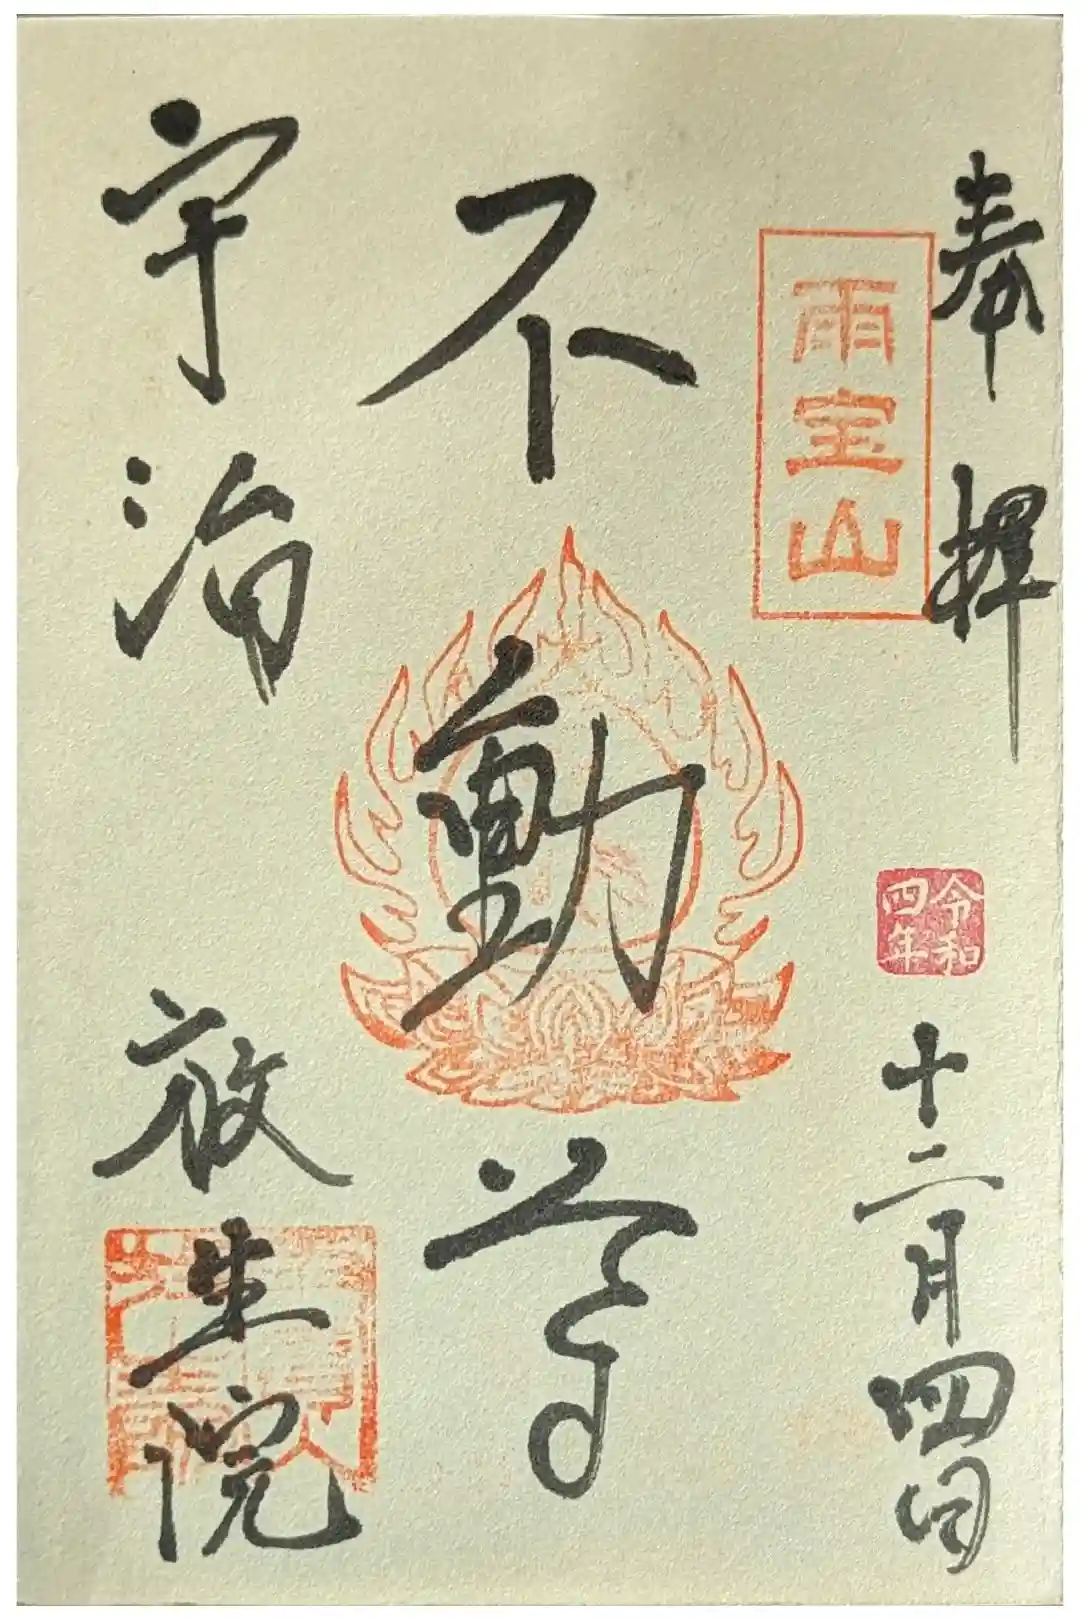 奉拝
令和四年
十二月四日
雨宝山
不動尊
宇治
放生院